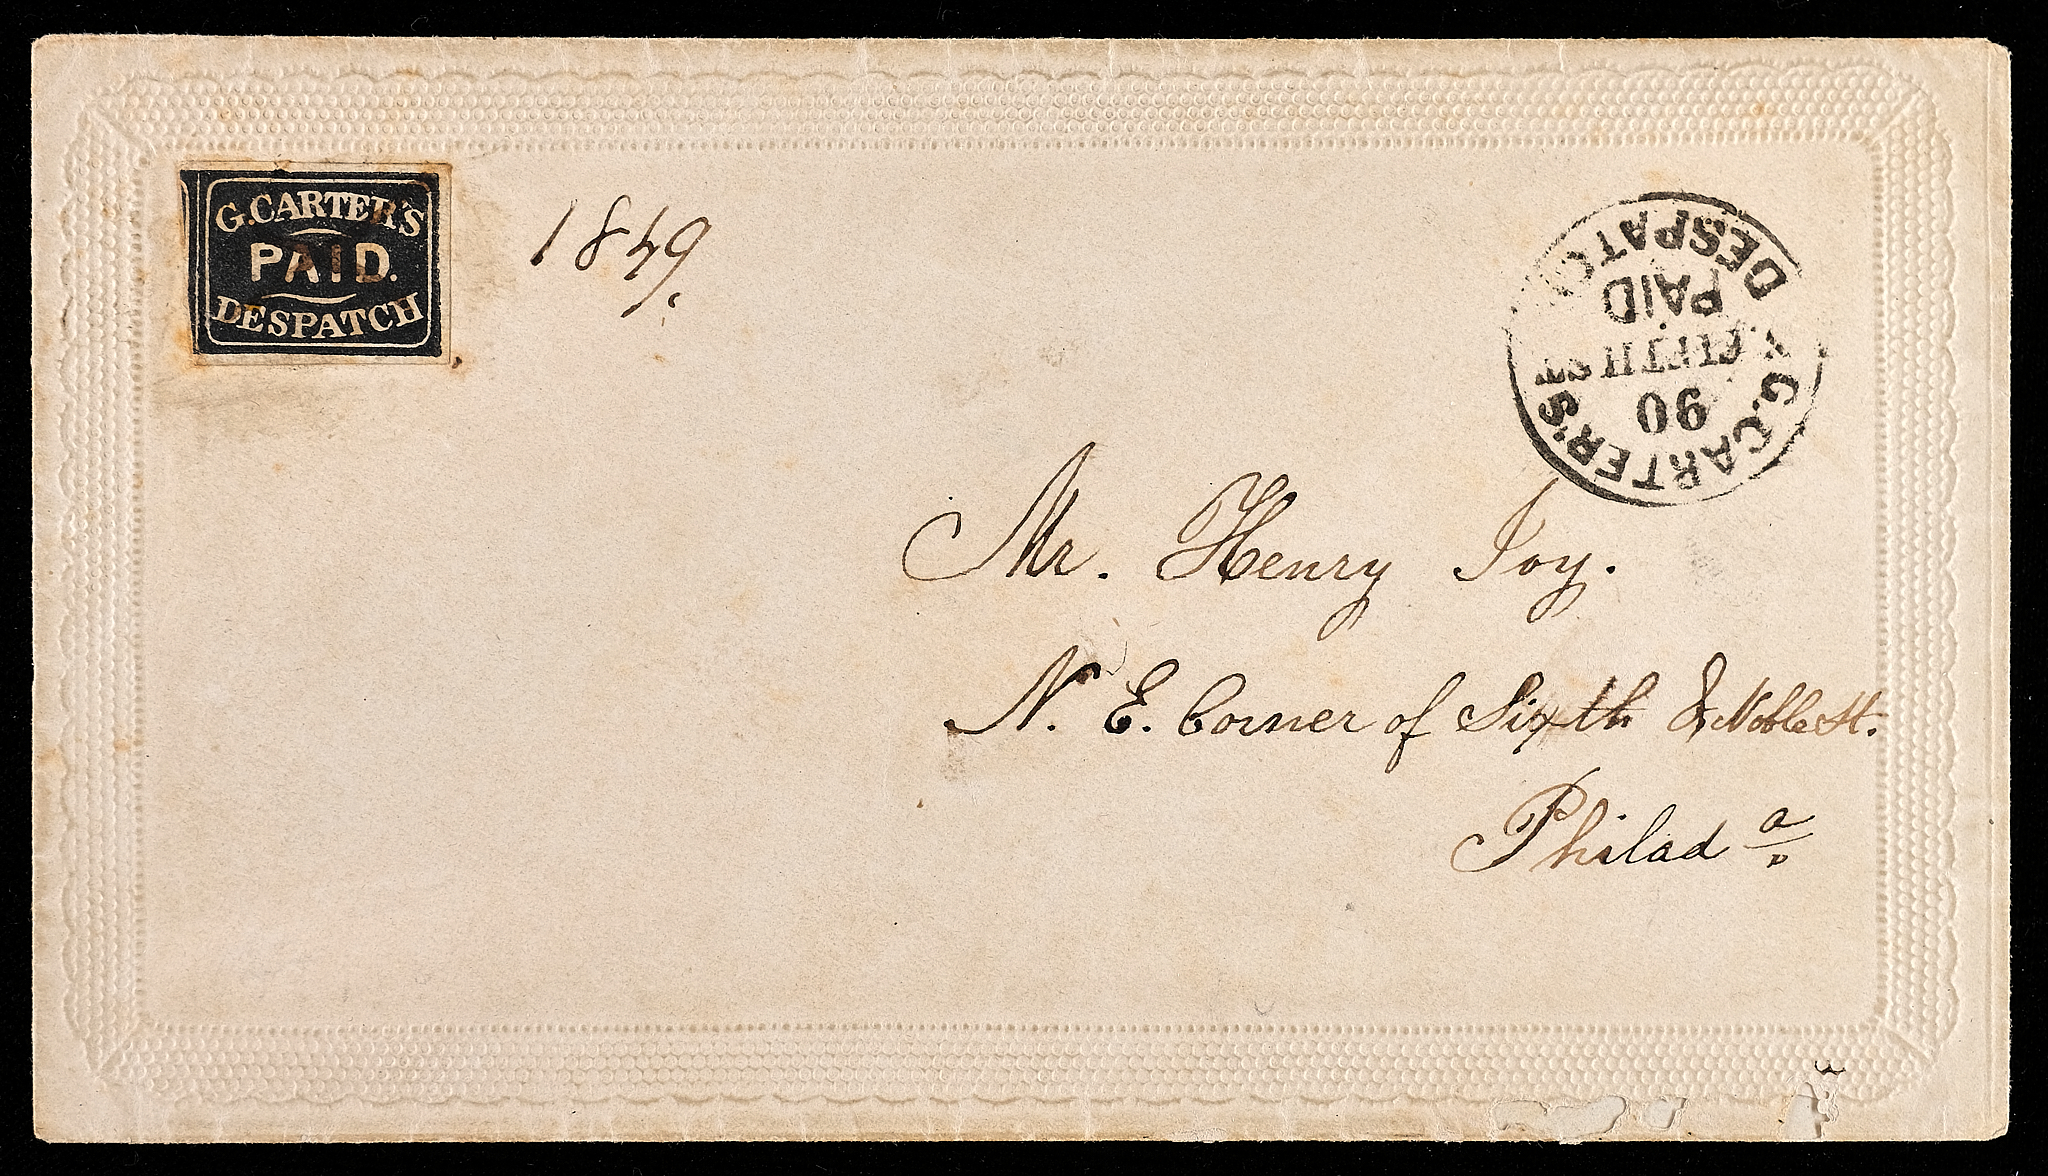 G. CARTER'S
PAID.
DESPATCH
1849.
G. CARTER'S DESPATCH
PAID
FIFTH ST
90
Mr. Henry Joy.
N. E. Corner of Sixth & Noble St.
Philad a